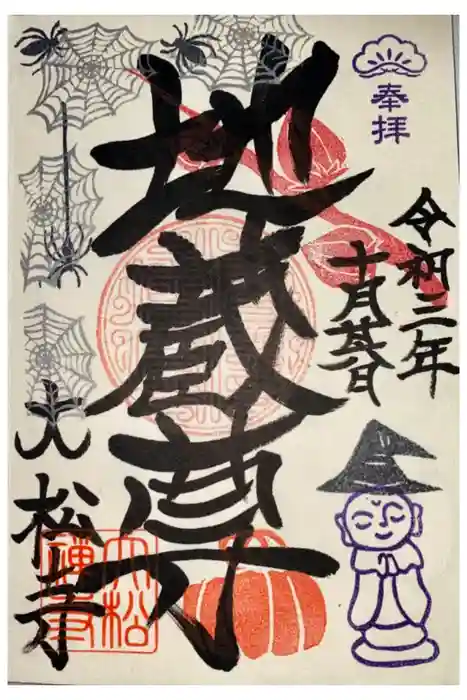 奉拝
令和三年
十月廿日
地蔵尊
大松寺
大松
禅寺